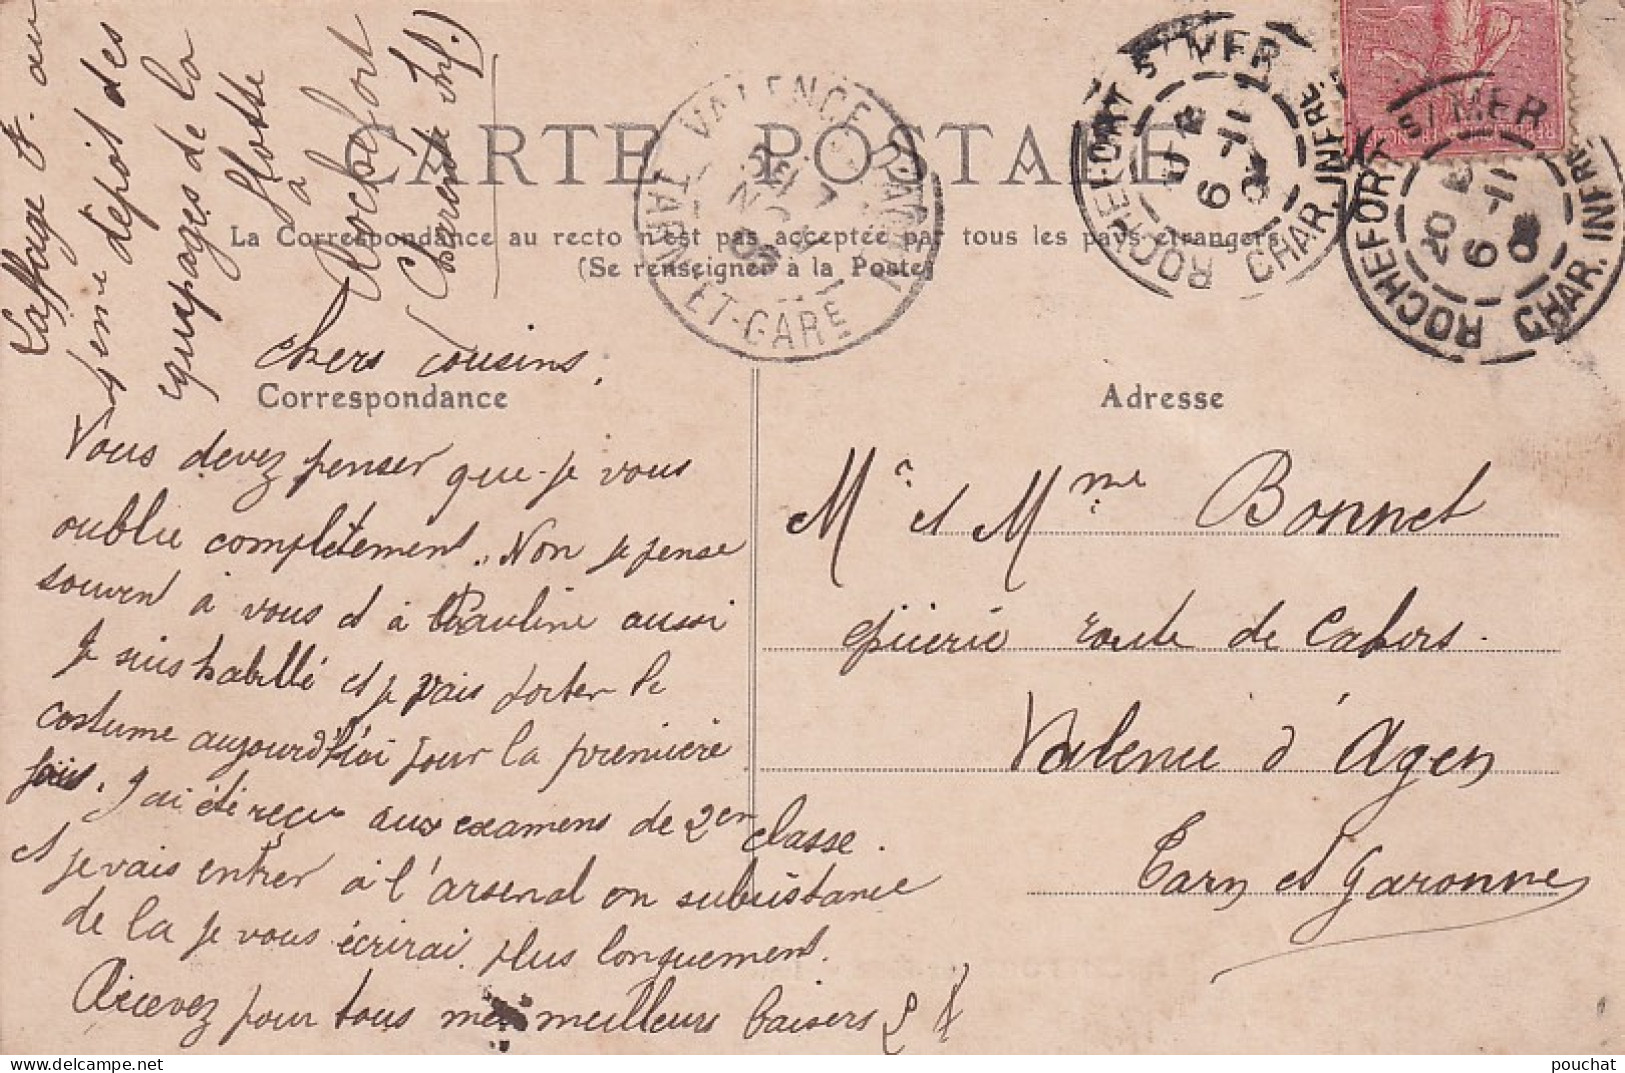 Laffage F. au
4eme dépot des
équipages de la
flotte
à
Rochefort
(Charente Inf.)
CARTE POSTALE
La Correspondance au recto n'est pas acceptée par tous les pays étrangers
(Se renseigner à la Poste)
VALENCE D'AGEN
TARN-ET-GARNE
ROCHEFORT S/MER
CHAR. INFRE
ROCHEFORT S/MER
CHAR. INFRE
Correspondance
Adresse
Chers cousins,
Vous devez penser que je vous
oublie complètement. Non je pense
souvent à vous et à Pauline aussi
Je suis habillé et je vais porter le
costume aujourd'hui pour la première
fois. J'ai été reçu aux examens de 2en classe.
et je vais entrer à l'arsenal en subsistance
de la je vous écrirai plus longuement.
Recevez pour tous mes meilleurs baisers
Mr et Mme Bonnet
épicerie route de Cahors.
Valence d'Agen
Tarn et Garonne
pouchat